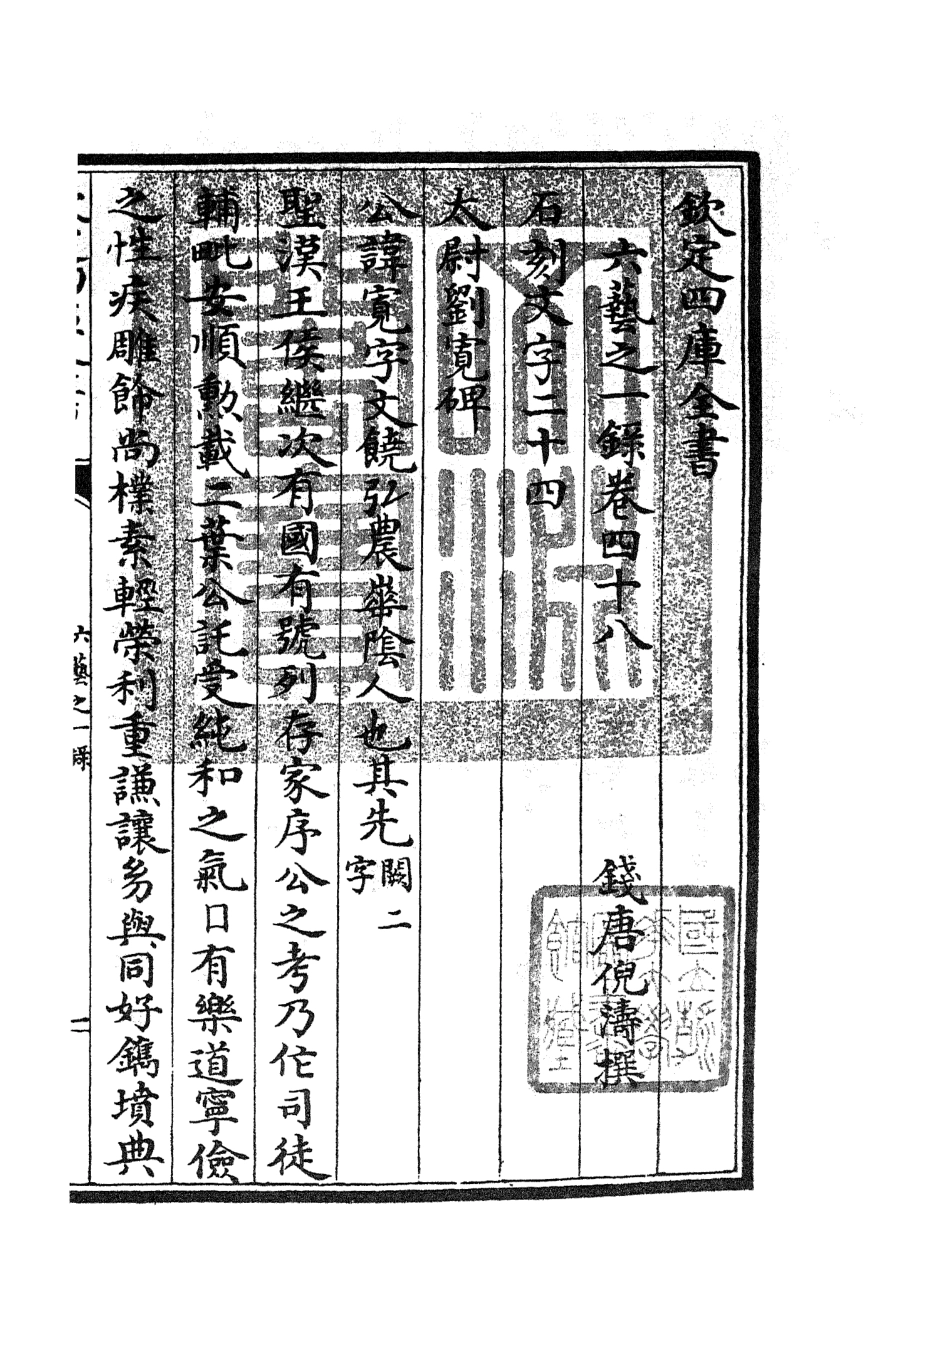 欽定四庫全書
六藝之一錄卷四十八
錢唐倪濤撰
石刻文字二十四
太尉劉寛碑
公諱寛字文饒弘農華陰人也其先闕二字
聖漢王侯繼次有國有號列存家序公之考乃作司徒
輔毗安順勲載二葉公託受純和之氣口有樂道寧儉
之性疾雕飾尚樸素輕榮利重謙讓㫑與同好鐫墳典
六藝之一録